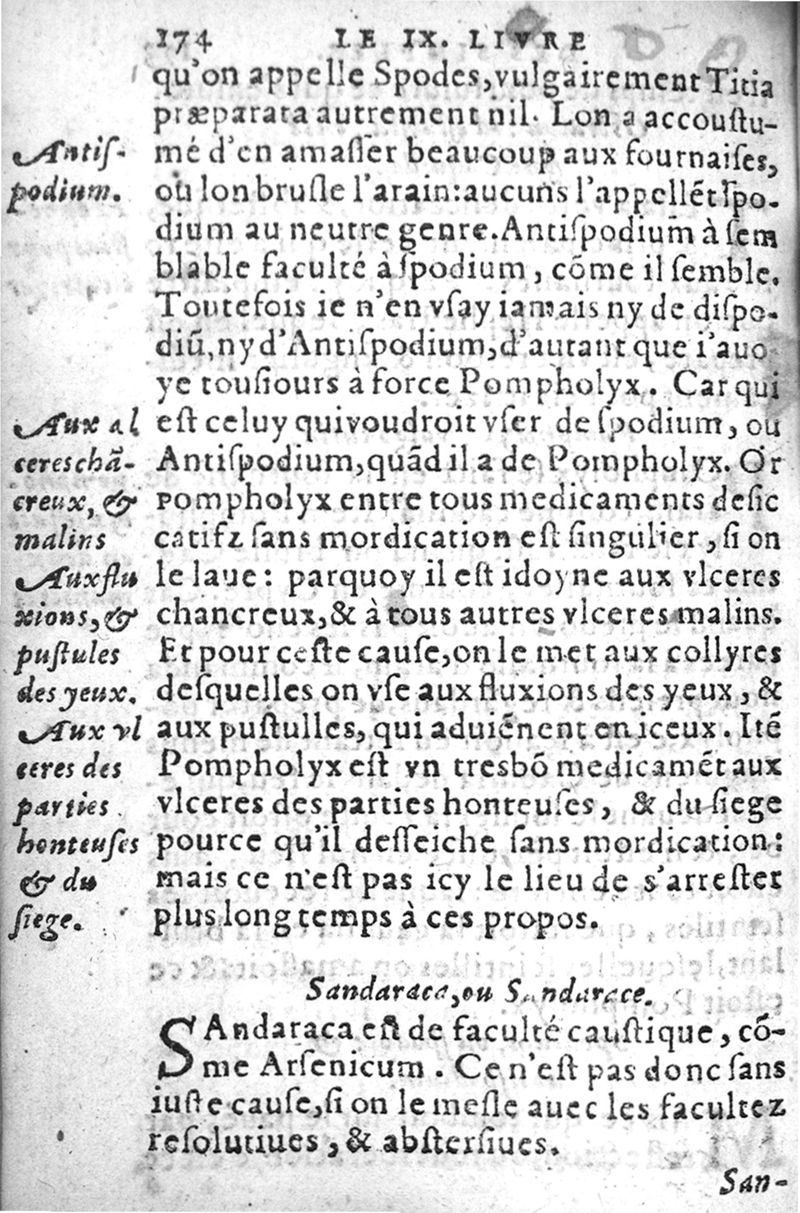 174 LE IX. LIVRE
qu'on appelle Spodes,vulgairement Titia
præparata autrement nil. Lon a accouſtu-
mé d'en amaſſer beaucoup aux fournaiſes,
où lon bruſle l'arain:aucuns l'appellẽt ſpo-
dium au neutre genre.Antiſpodium à ſem
blable faculté à ſpodium, cõme il ſemble.
Toutefois ie n'en vſay iamais ny de diſpo-
diũ,ny d'Antiſpodium,d'autant que i'auo
ye touſiours à force Pompholyx. Car qui
eſt celuy quivoudroit vſer de ſpodium, ou
Antiſpodium,quãd il a de Pompholyx. Or
Pompholyx entre tous medicaments deſic
catifz ſans mordication eſt ſingulier, ſi on
le laue: parquoy il eſt idoyne aux vlceres
chancreux,& à tous autres vlceres malins.
Et pour ceſte cauſe,on le met aux collyres
deſquelles on vſe aux fluxions des yeux, &
aux puſtulles, qui aduiẽnent en iceux. Itẽ
Pompholyx eſt vn tresbõ medicamẽt aux
vlceres des parties honteuſes, & du ſiege
pource qu'il deſſeiche ſans mordication:
mais ce n'eſt pas icy le lieu de s'arreſter
plus long temps à ces propos.
Antiſ-
podium.
Aux al
cereschã-
creux, &
malins
Auxflu
xions, &
puſtules
des yeux.
Aux vl
ceres des
parties
honteuſes
& du
ſiege.
Sandaraca,ou Sandarace.
SAndaraca eſt de faculté cauſtique, cõ-
me Arſenicum. Ce n'eſt pas donc ſans
iuſte cauſe,ſi on le meſle auec les facultez
reſolutiues, & abſterſiues.
San-